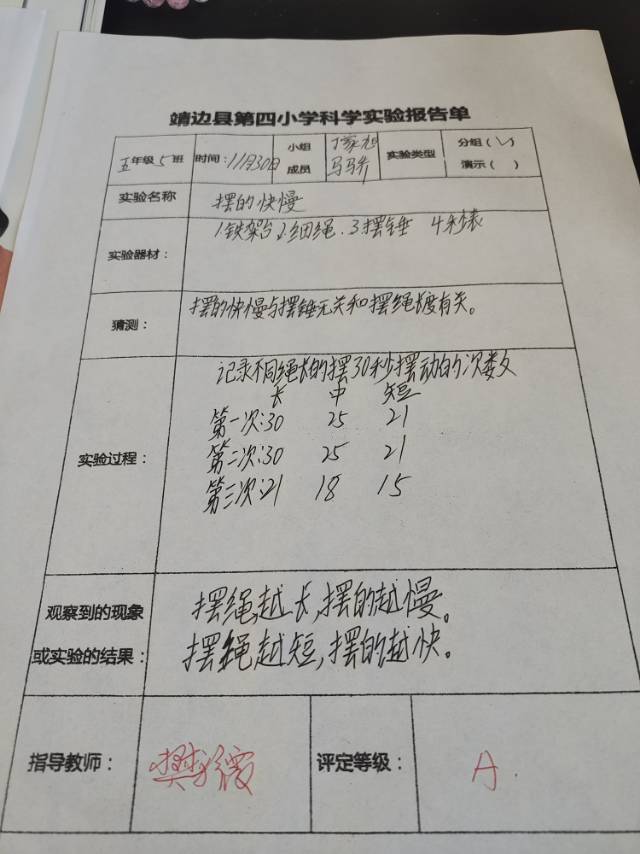 靖边县第四小学科学实验报告单
五年级5班 时间:11月30日 小组成员 实验类型 分组(√) 演示( )
实验名称 摆的快慢
实验器材: 1铁架台 2.细绳.3摆锤 4秒表
猜测: 摆的快慢与摆锤无关和摆绳长度有关。
实验过程: 记录不同绳长的摆30秒摆动的次数
长 中 短
第一次:30 25 21
第二次:30 25 21
第三次:21 18 15
观察到的现象 摆绳越长,摆的越慢。
或实验的结果: 摆绳越短,摆的越快。
指导教师: 评定等级: A.